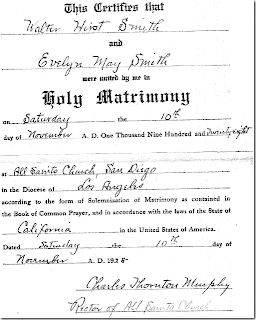 This Certifies that
Walter Hirst Smith
and
Evelyn May Smith
were united by me in
Holy Matrimony
on Saturday the 10th
day of November A. D. One Thousand Nine Hundred and twenty eight
at All Saints Church, San Diego
in the Diocese of Los Angeles
according to the form of Solemnization of Matrimony as contained in
the Book of Common Prayer, and in accordance with the laws of the State of
California in the United States of America.
Dated Saturday the 10th day of
November A. D. 1928
Charles Thornton Murphy
Rector of All Saints Church